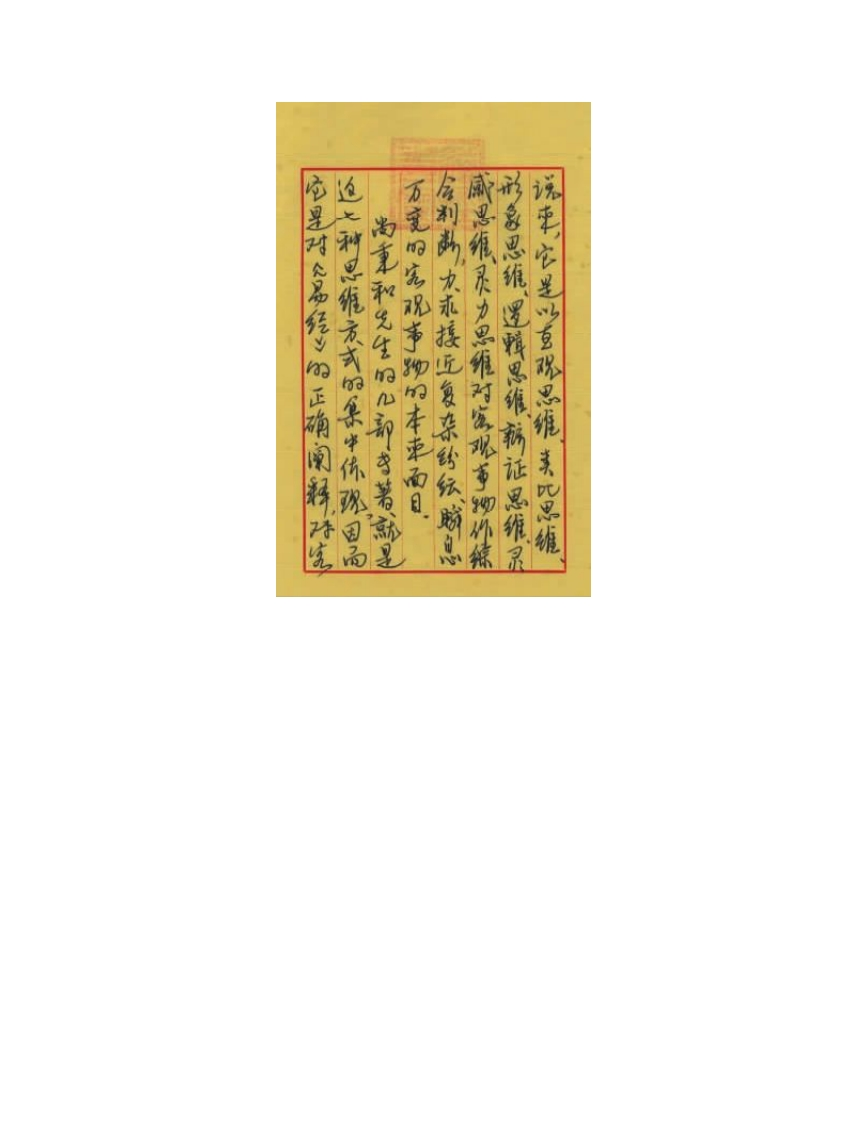 说来，它是以直观思维、类比思维、
形象思维、逻辑思维、辩证思维、灵
感思维、灵力思维对客观事物作综
合判断，力求接近复杂纷纭、瞬息
万变的客观事物的本来面目。
尚秉和先生的几部专著，就是
这七种思维方式的集中体现，因而
它是对《易经》的正确阐释，对客